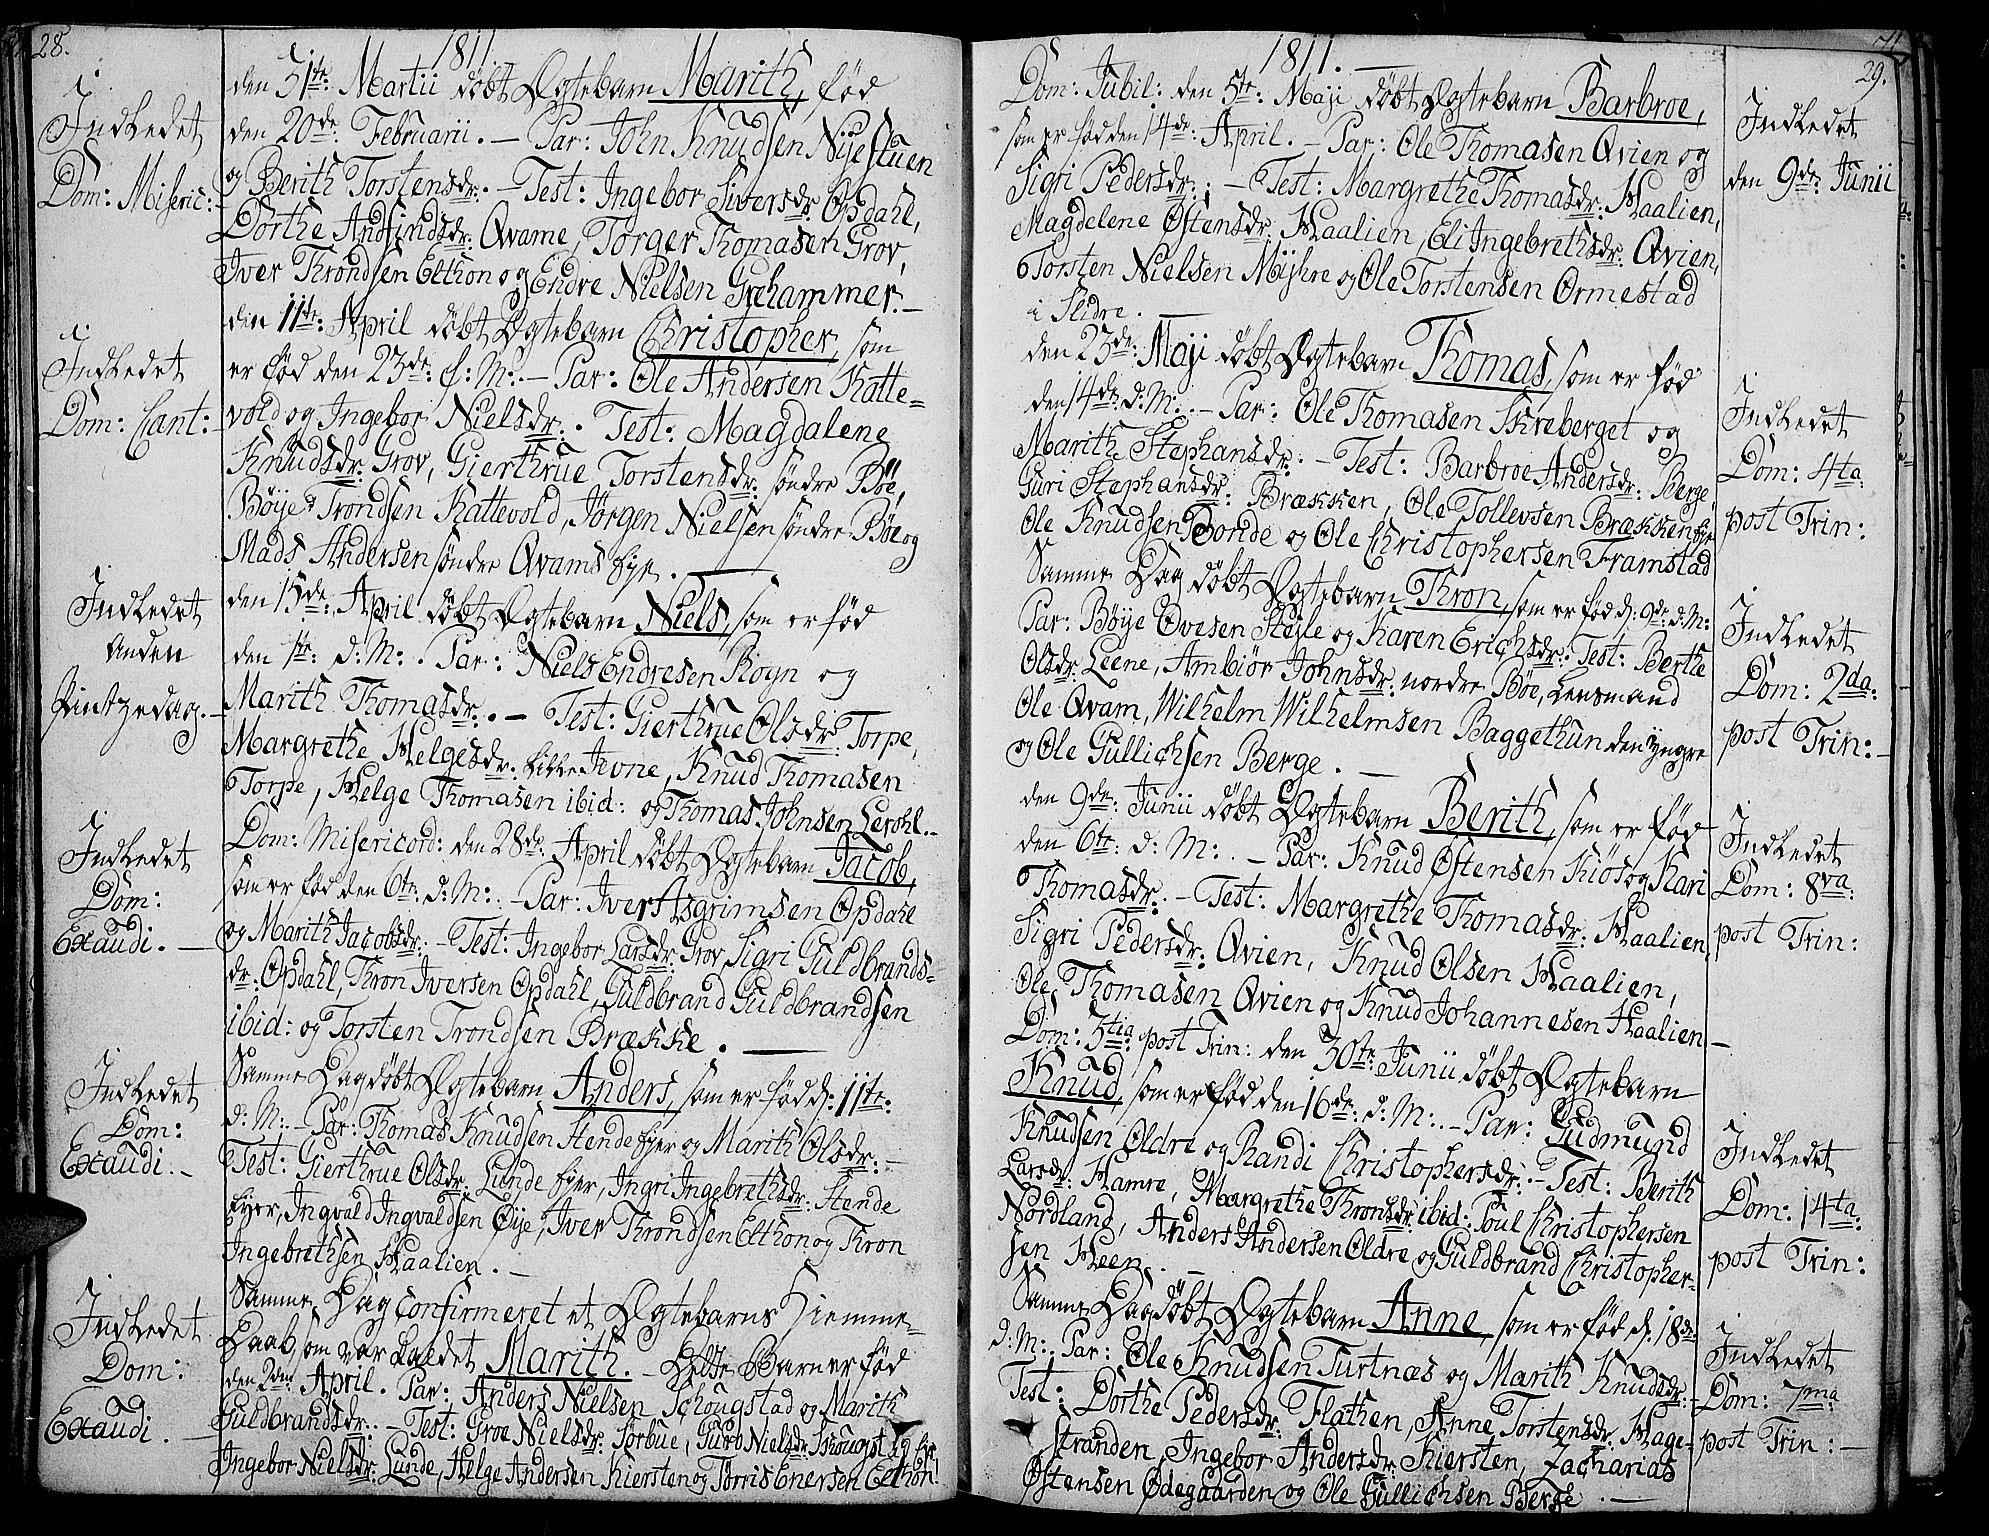 28.
1811.
J
Indledet
Dom: Miseric:
den 31te: Martii døbt Ægtebarn Marith, fød
den 20de Februarii. – Par: John Knudsen Nÿestuen
og Berith Torstensdr:. – Test: Ingebor Siversdr: Opdahl,
Dorthe Andfindsdr: Qvame, Torger Thomasen Grov,
Iver Throndsen Elthon og Endre Nielsen Grehammer. –
J
Indledet
Dom: Cant:
den 11te: April døbt Ægtebarn Christopher, som
er fød den 23de: f: M:. – Par: Ole Andersen Katte=
vold og Ingebor Nielsdr:. Test: Magdalene
Knudsdr: Grov, Gierthrue Torstensdr: søndre Bøe,
Bøÿe Trondsen Kattevold, Jørgen Nielsen søndre Bøe og
Mads Andersen søndre Qvams Eje.
Indledet
Anden
Pintzedag. –
den 15de: April døbt Ægtebarn Niels, som er fød
den 1te: d: M:. Par: Niels Endresen Rogn og
Marith Thomasdr:. – Test: Gierthrue Olsdr: Torpe,
Margrethe Helgesdr: lille Jevne, Knud Thomasen
Torpe, Helge Thomasen ibid: og Thomas Johnsen Lerohl. –
J
Indledet
Dom:
Exaudi. –
Dom: Misericord: den 28de: April døbt Ægtebarn Jacob,
som er fød den 6te: d: M:. – Par: Iver Asgrimsen Opdahl
og Marith Jacobsdr:. – Test: Ingebor Larsdr: Grov, Sigri Guldbrands=
dr: Opdahl, Thron Iversen Opdahl, Guldbrand Guldbrandsen
ibid: og Torsten Trondsen Brække.
J
Indledet
Dom:
Exaudi. –
Samme Dag døbt Ægtebarn Anders, som er fød d: 11te:
d: M:. – Par: Thomas Knudsen Stende Ejer og Marith Olsdr: –
Test: Gierthrue Olsdr: Lunde Ejer, Ingri Ingebrethsdr: Stende
Ejer, Ingvald Ingvaldsen Øÿe, Iver Throndsen Elthon og Thron
Ingebrethsen Haalien. –
J
Indledet
Dom:
Exaudi. –
Samme Dag confirmeret et Ægtebarns Hiemme=
Daab, som var kaldet Marith. – Dette Barn er fød
den 2den April. Par: Anders Nielsen Schougstad og Marith
Guldbrandsdr:. – Test: Groe Nielsdr: Sørbue, Guro Nielsdr: Skougst:
Ingebor Nielsdr: Lunde, Helge Andersen Kiersten og Torris Enersen Elthon!
29.
1811. –
Dom: Jubil: den 5te: Maji døbt Ægtebarn Barbroe,
som er fød den 14de: April. – Par: Ole Thomasen Qvien og
Sigri Pedersdr:. – Test: Margrethe Thomasdr: Haalien,
Magdelene Østensdr: Haalien, Eli Ingebrethsdr: Qvien,
Torsten Nielsen Mÿhre og Ole Torstensen Ormestad
i Slidre.
J
Indledet
den 9de: Junii
den 23de: Maji døbt Ægtebarn Thomas, som er fød
den 14de: d: M:. – Par: Ole Thomasen Skreberget og
Marith Stephansdr:. – Test: Barbroe Andersdr: Berge,
Guri Stephansdr: Brækken, Ole Tollevsen Brækken Eje
Ole Knudsen Bonde og Ole Christophersen Framstad
J
Indledet
Dom: 4ta:
post Trin:
Samme Dag døbt Ægtebarn Thron, som er fød d: 9de: d: M:
Par: Bøÿe Ovesen Steile og Karen Erichsdr:. Test: Berthe
Olsdr: Leene, Ambiør Johnsdr: nordre Bøe, Lensmand
Ole Qvam, Wilhelm Wilhelmsen Baggethun den ÿngre
og Ole Gullichsen Berge. –
J
Indledet
Dom: 2da:
post Trin: –
den 9de: Junii døbt Ægtebarn Berith, som er fød
den 6te: d: M:. – Par: Knud Østensen Kiøs og Kari
Thomasdr:. – Test: Margrethe Thomasdr: Haalien
Sigri Pedersdr: Qvien, Knud Olsen Haalien,
Ole Thomasen Qvien og Knud Johannesen Haalien –
J
Indledet
Dom: 8va:
post Trin:
Dom: 3tia: post Trin: den 30te: Junii døbt Ægtebarn
Knud, som er fød den 16de: d: M:. – Par: Gudmund
Knudsen Oldre og Randi Christophersdr: – Test: Berith
Larsdr: Hamre, Margrethe Thronsdr: ibid: Poul Christophersen
Nordland, Anders Andersen Oldre og Guldbrand Christopher=
sen Heen. –
J
Indledet
Dom: 14ta:
post Trin:
Samme Dag døbt Ægtebarn Anne, som er fød d: 18de:
d: M:. Par: Ole Knudsen Turtnæs og Marith Knudsdr: –
Test: Dorthe Pedersdr: Flathen, Anne Torstensdr: Hage=
stranden, Ingebor Andersdr: Kiersten, Zacharias
Østensen Ødegaarden og Ole Gullichsen Berge. –
J
Indledet
Dom: 7ma
post Trin: –